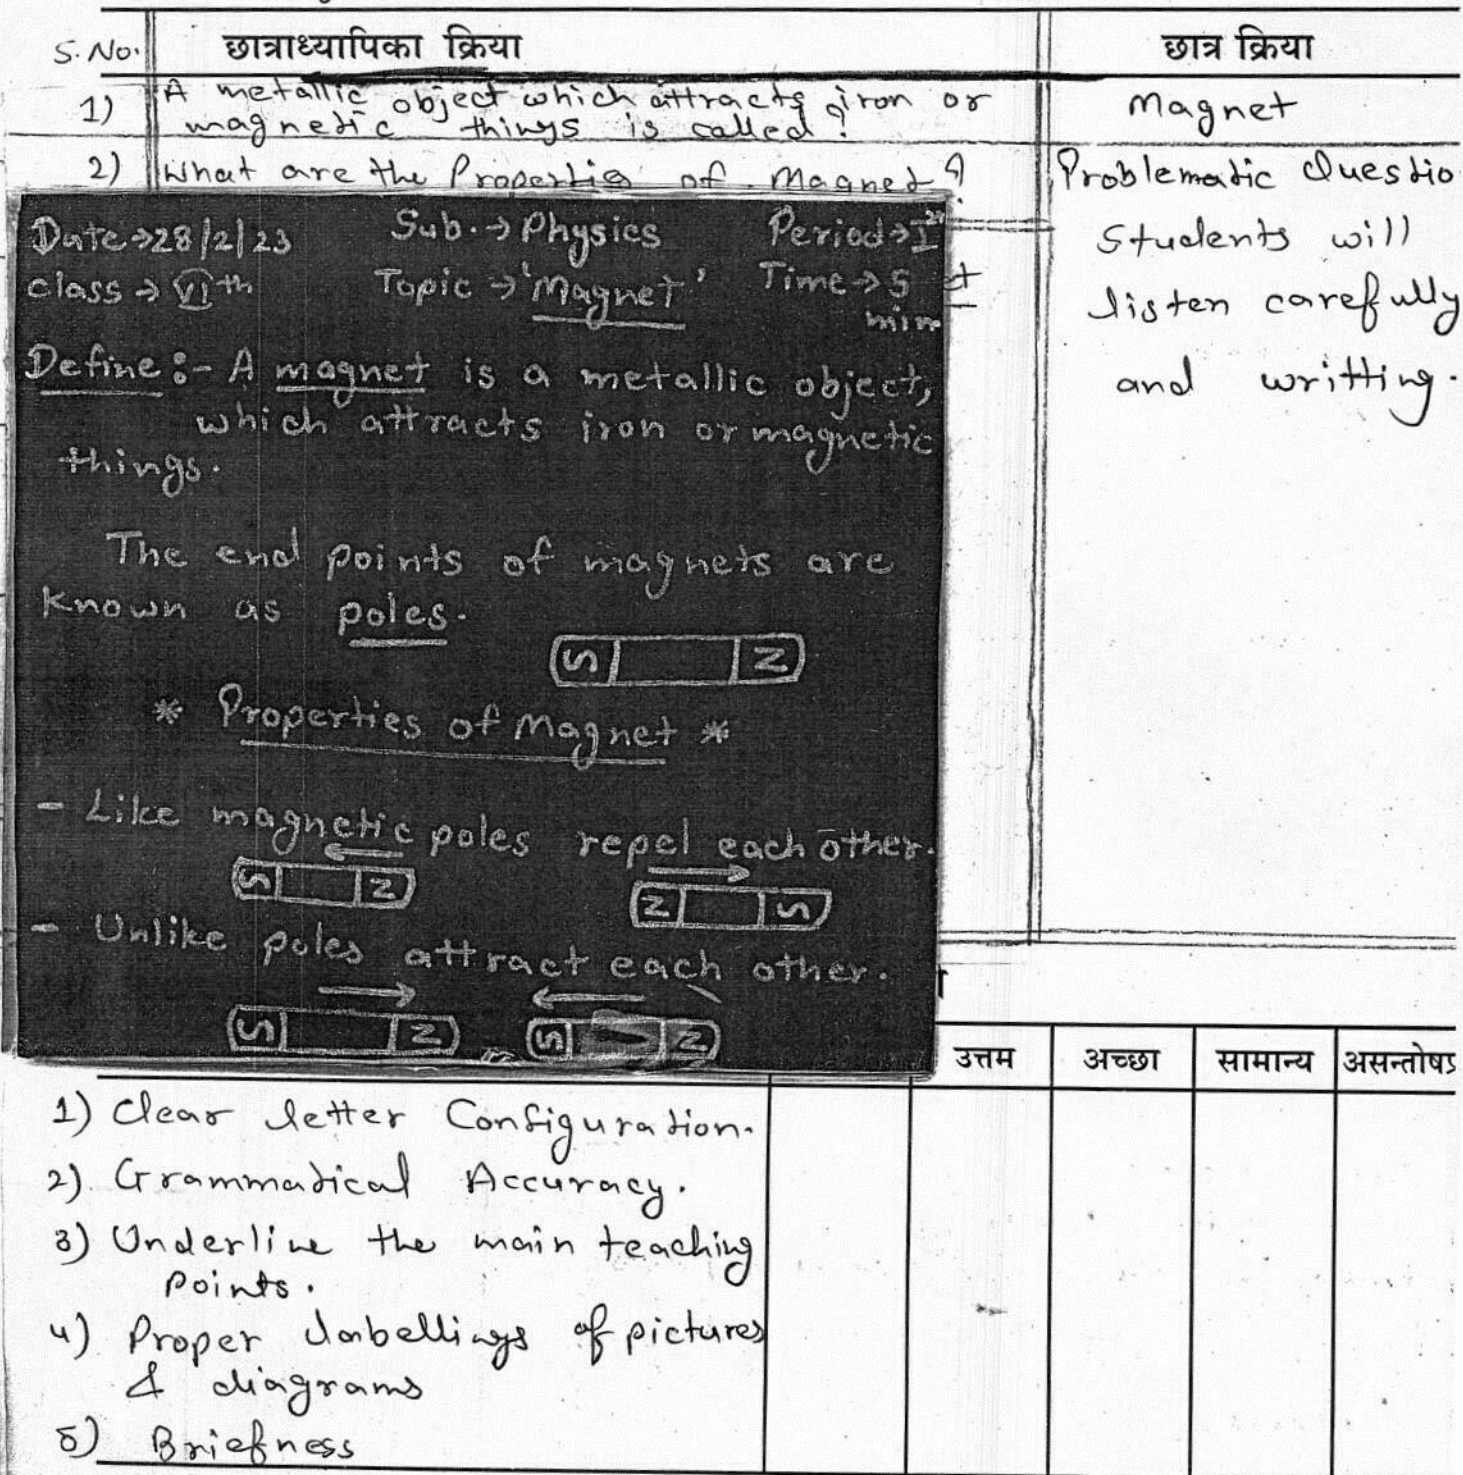 S.No. छात्राध्यापिका क्रिया छात्र क्रिया
1) A metallic object which attracts iron or
magnetic things is called?
Magnet
2) What are the Properties of Magnet?
Problematic Questio
Students will
listen carefully
and writting.
Date→28/2/23 Sub.→Physics Period→I
class→VIth Topic→'Magnet' Time→5
min
Define:- A magnet is a metallic object,
which attracts iron or magnetic
things.
The end points of magnets are
known as poles.
S N
* Properties of Magnet *
- Like magnetic poles repel each other.
S N N S
- Unlike poles attract each other.
S N S N
उत्तम अच्छा सामान्य
1) Clear letter Configuration.
2) Grammatical Accuracy.
3) Underline the main teaching
Points.
4) Proper Labellings of pictures
& diagrams
5) Briefness